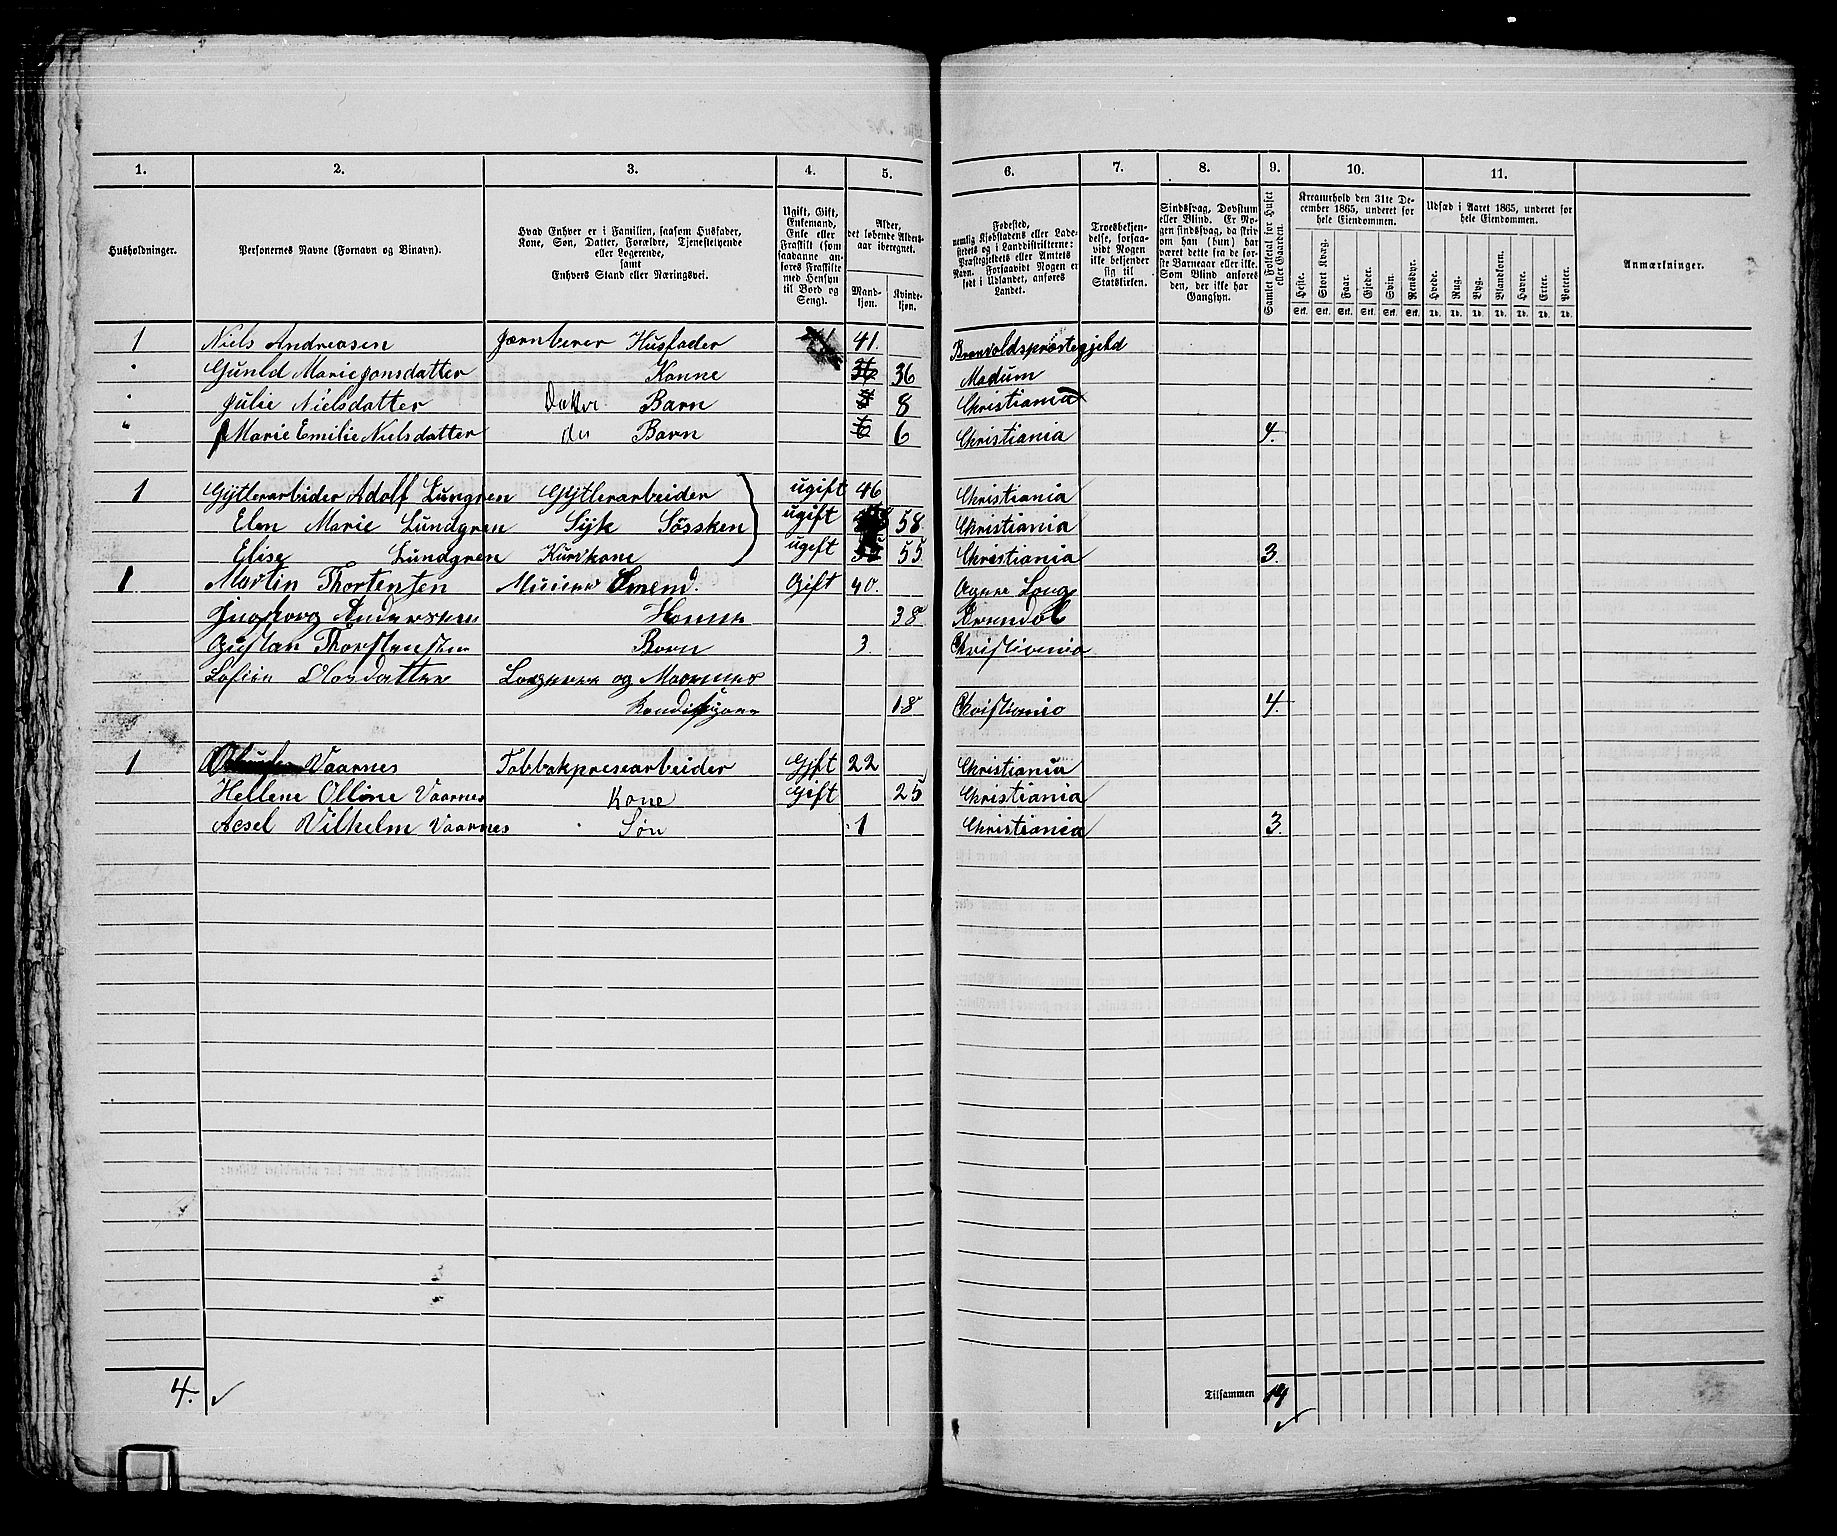 1. 2. 3. 4. 5. 6. 7. 8. 9. 10. 11.
Husholdninger.
Personernes Navne (Fornavn og Binavn).
Hvad Enhver er i Familien, saasom Husfader, Kone, Søn, Datter, Forældre, Tjenestetyende eller Logerende, samt Enhvers Stand eller Næringsvei.
Ugift, Gift, Enkemand, Enke eller Fraskilt (som saadanne anføres Fraskilte med Hensyn til Bord og Seng).
Alder, det løbende Aldersaar iberegnet.
Mandkjøn. Kvindekjøn.
Fødested, nemlig Kjøbstadens eller Ladestedets og i Landdistrikterne: Præstegjeldets eller Amtets Navn. Forsaavidt Nogen er født i Udlandet, anføres Landet.
Troesbekjendelse, forsaavidt Nogen ikke bekjender sig til Statskirken.
Sindssvag, Døvstum eller Blind. Er Nogen sindssvag, da skrives om han (hun) har været dette fra de første Barneaar eller ikke. Som Blind anføres den, der ikke har Gangsyn.
Samlet Folketal for Huset eller Gaarden.
Kreaturhold den 31te December 1865, underet for hele Eiendommen.
Heste. Stort Kvæg. Faar. Gjeder. Svin. Rensdyr.
Stk. Stk. Stk. Stk. Stk. Stk.
Udsæd i Aaret 1865, underet for hele Eiendommen.
Hvede. Rug. Byg. Blandkorn. Havre. Erter. Poteter.
Td. Td. Td. Td. Td. Td. Td.
Anmærkninger.
1 Niels Andreasen Husfader 41.
Marie Jonsdatter Konne 36 36 Modum
Julie Nielsdatter Barn 8 8 Christiania
Marie Emilie Nielsdatter do Barn 6 6 Christiania 4.
1 Gÿtlerarbider Adolf Lungren Gÿtlerarbeider ugift 46 Christiania
Elen Marie Lundgren Sÿk Søssken ugift 58 Christiania
Elise Lundgren Kurvkone ugift 55 Christiania 3.
1 Martin Thortensen Gift 40.
38
Barn 3. Christiania
Olosdatter og
18 Christiania 4.
1 Vaarnes Tobbakpresearbeider Gift 22 Christiania
Hellene Olline Vaarnes Kone Gift 25 Christiania
Acsel Vilhelm Vaarnes Søn 1 Christiania 3.
4. Tilsammen 14